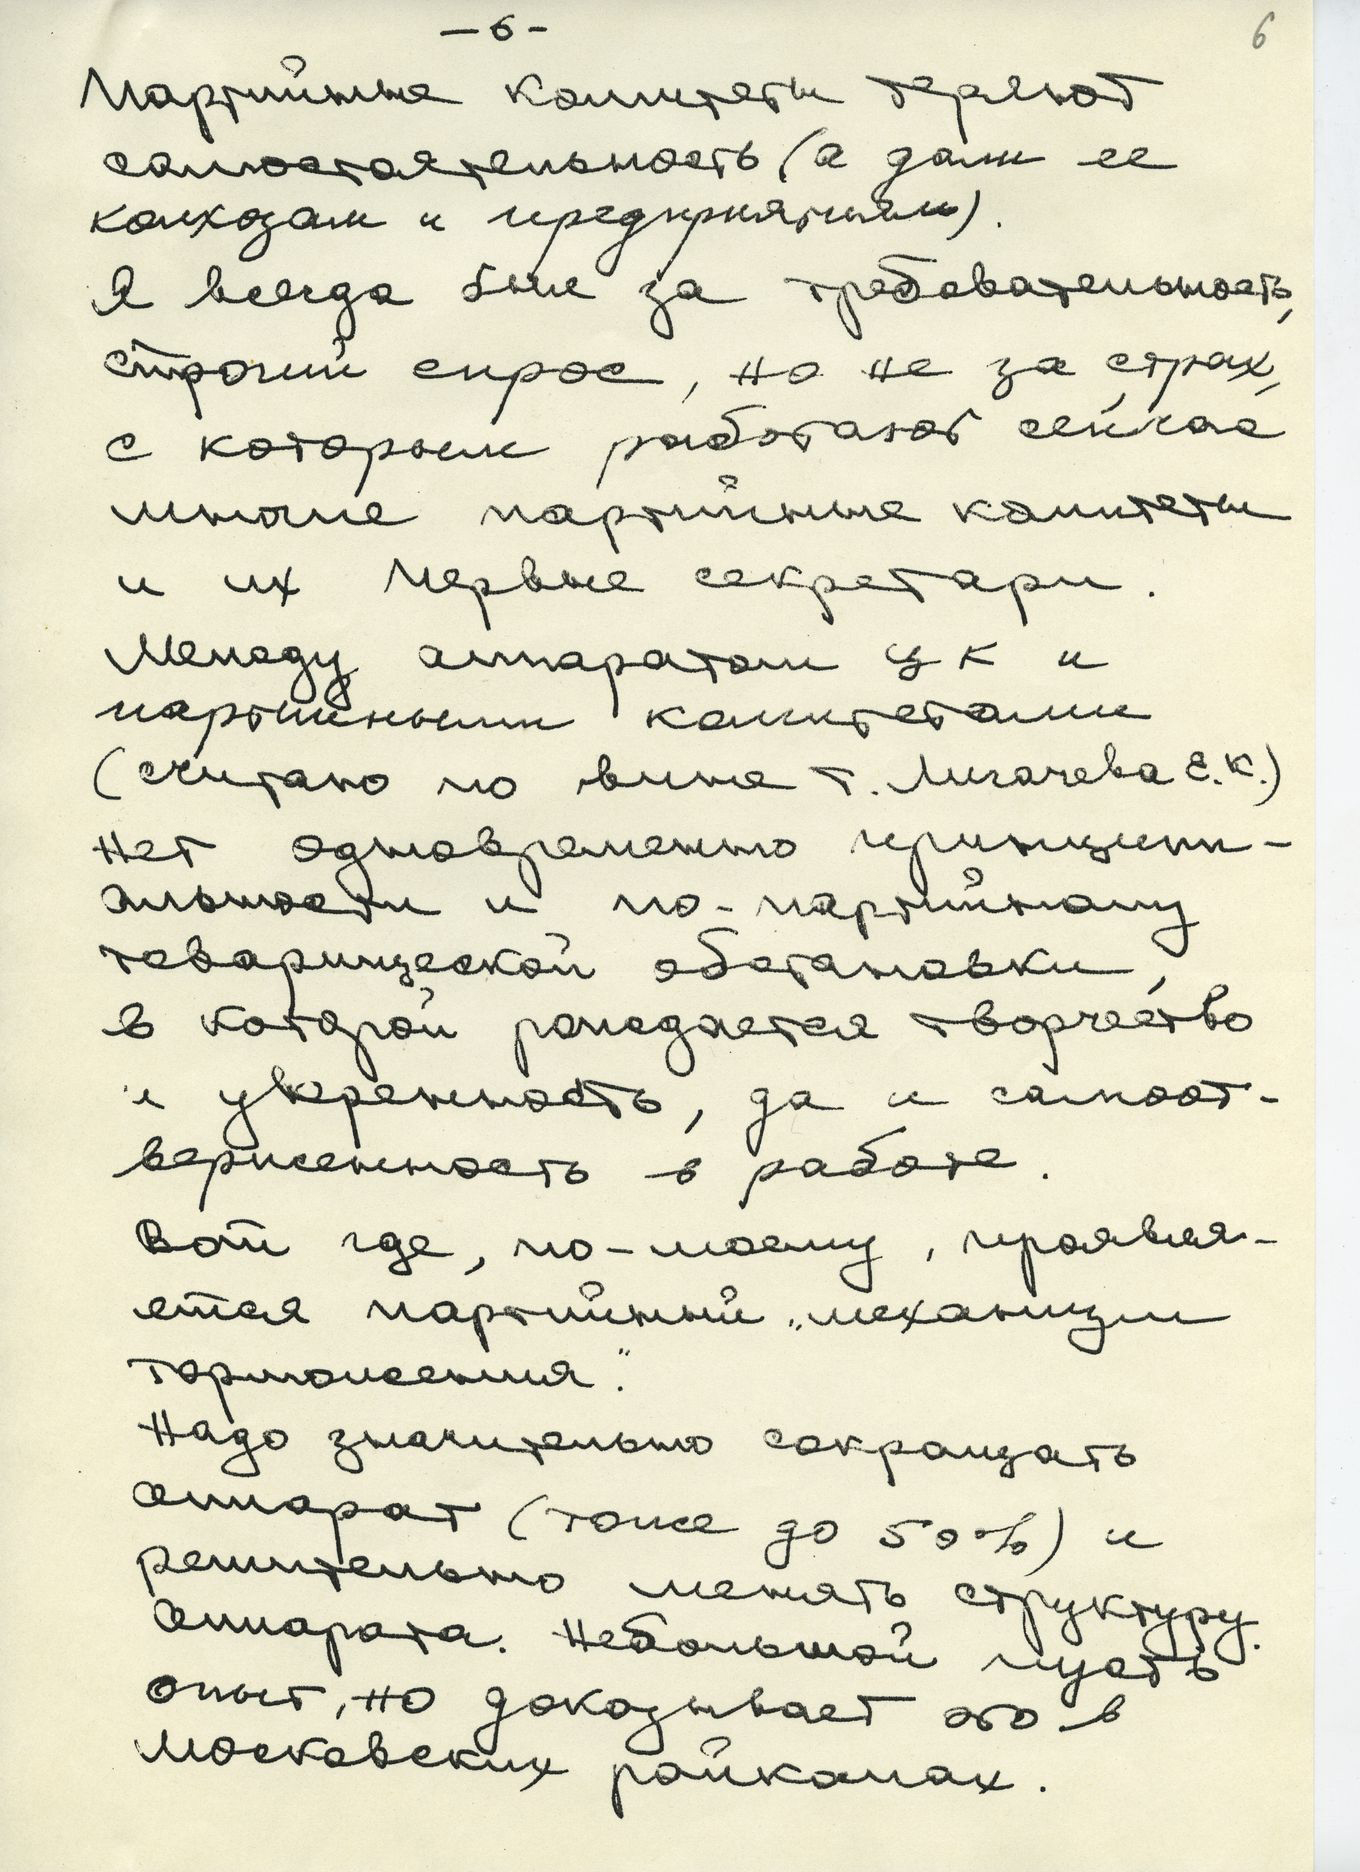 -6-
6
Партийные комитеты теряют
самостоятельность (а дали ее
колхозам и предприятиям).
Я всегда был за требовательность,
строгий спрос, но не за страх,
с которым работают сейчас
многие партийные комитеты
и их первые секретари.
Между аппаратом ЦК и
партийными комитетами
(считаю по вине т. Лигачева Е.К.)
нет одновременно принципи-
альности и по-партийному
товарищеской обстановки,
в которой рождается творчество
и уверенность, да и самоот-
верженность в работе.
Вот где, по-моему, проявля-
ется партийный „механизм
торможения".
Надо значительно сокращать
аппарат (тоже до 50%) и
решительно менять структуру
аппарата. Небольшой пусть
опыт, но доказывает это в
московских райкомах.